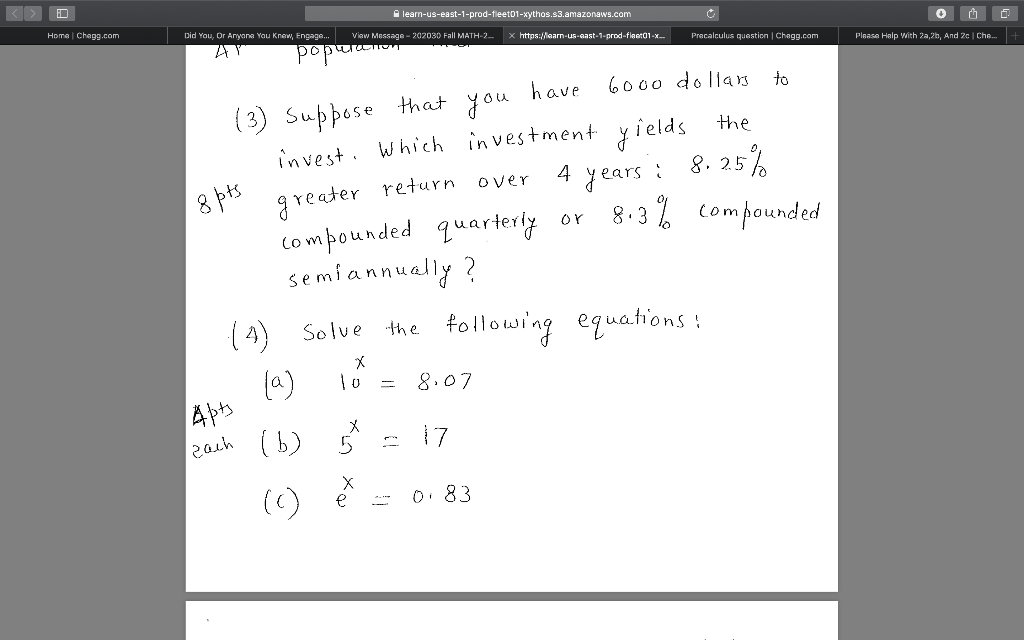 learn-us-east-1-prod-fleet01-xythos.s3.amazonaws.com
Home | Chegg.com
Did You, Or Anyone You Know, Engage...
View Message – 202030 Fall MATH-2...
https://learn-us-east-1-prod-fleet01-x...
Precalculus question | Chegg.com
Please Help With 2a,2b, And 2c | Che...
(3) Suppose that you have 6000 dollars to
invest. Which investment yields the
8 pts greater return over 4 years : 8.25%
compounded quarterly or 8.3% compounded
semiannually ?
(4) Solve the following equations :
(a) 10^x = 8.07
4 pts
each (b) 5^x = 17
(c) e^x = 0.83